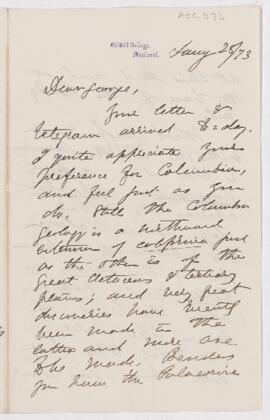 ACC-976
McGill College,
Montreal.
Jany 28/73
Dear George,
Your letter &
telegram arrived to day.
I quite appreciate your
preference for Columbia,
and feel just as you
do. Still the Columbia
geology is a northward
extension of California just
as the other is of the
great cretaceous & tertiary
plains; and very great
discoveries have recently
been made in the
latter and more are
to be made. Besides
you have the Palaeozoic